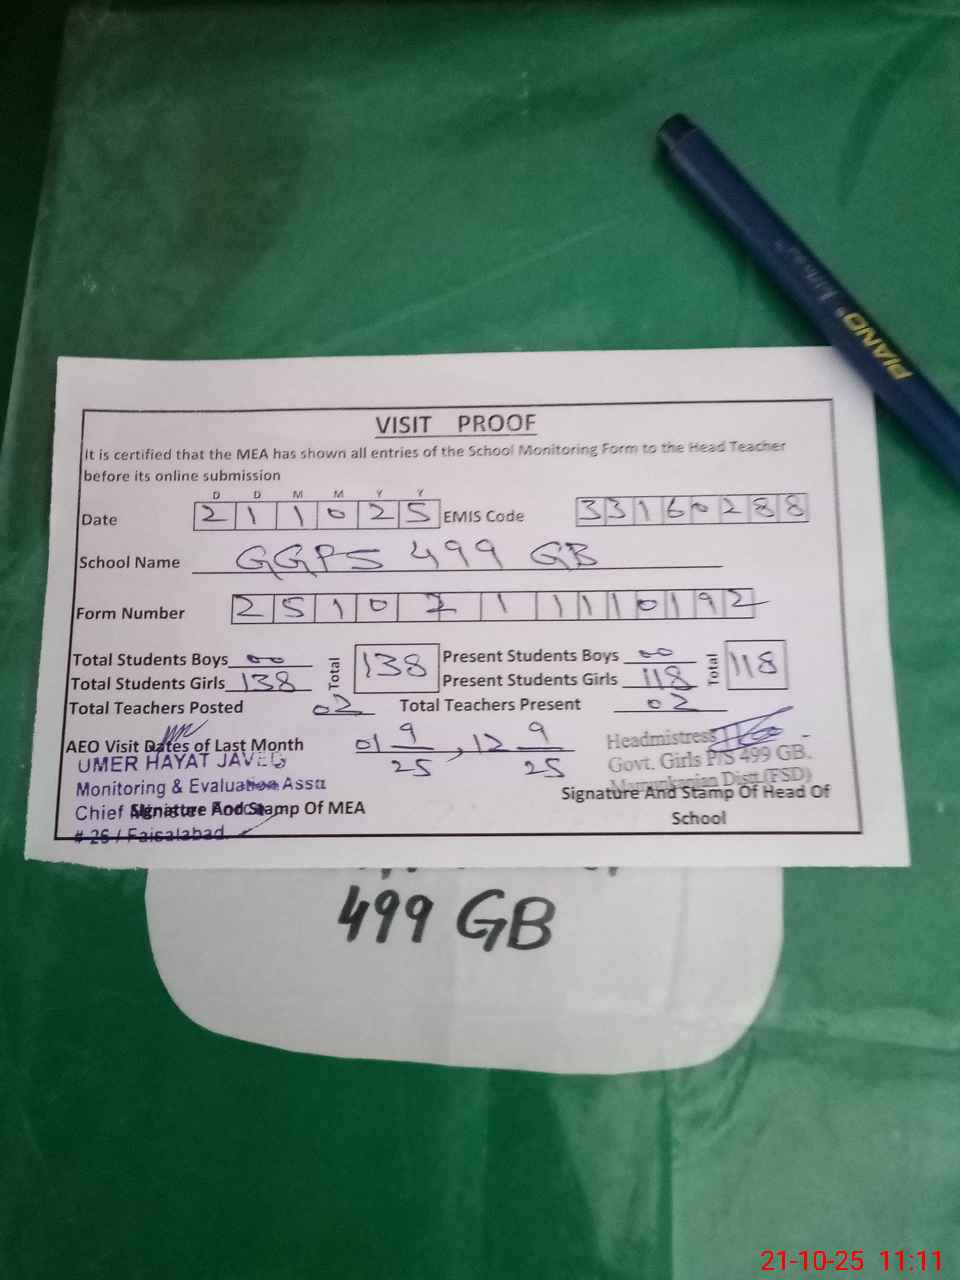 PIANO
VISIT PROOF
It is certified that the MEA has shown all entries of the School Monitoring Form to the Head Teacher
before its online submission
D D M M Y Y
Date 2 1 1 0 2 5 EMIS Code 3 3 1 6 0 2 8 8
School Name GGPS 499 GB
Form Number 2 5 1 0 2 1 1 1 1 0 1 9 2
Total Students Boys 00 Total 138 Present Students Boys 00 Total 118
Total Students Girls 138 Present Students Girls 118
Total Teachers Posted 02 Total Teachers Present 02
AEO Visit Dates of Last Month 01 9/25, 12 9/25
Headmistress
UMER HAYAT JAVED Govt. Girls P/S 499 GB.
Monitoring & Evaluation Assa Distt (FSD)
Chief Signature And Stamp Of MEA Signature And Stamp Of Head Of
School
# 26 / Faisalabad
499 GB
21-10-25 11:11